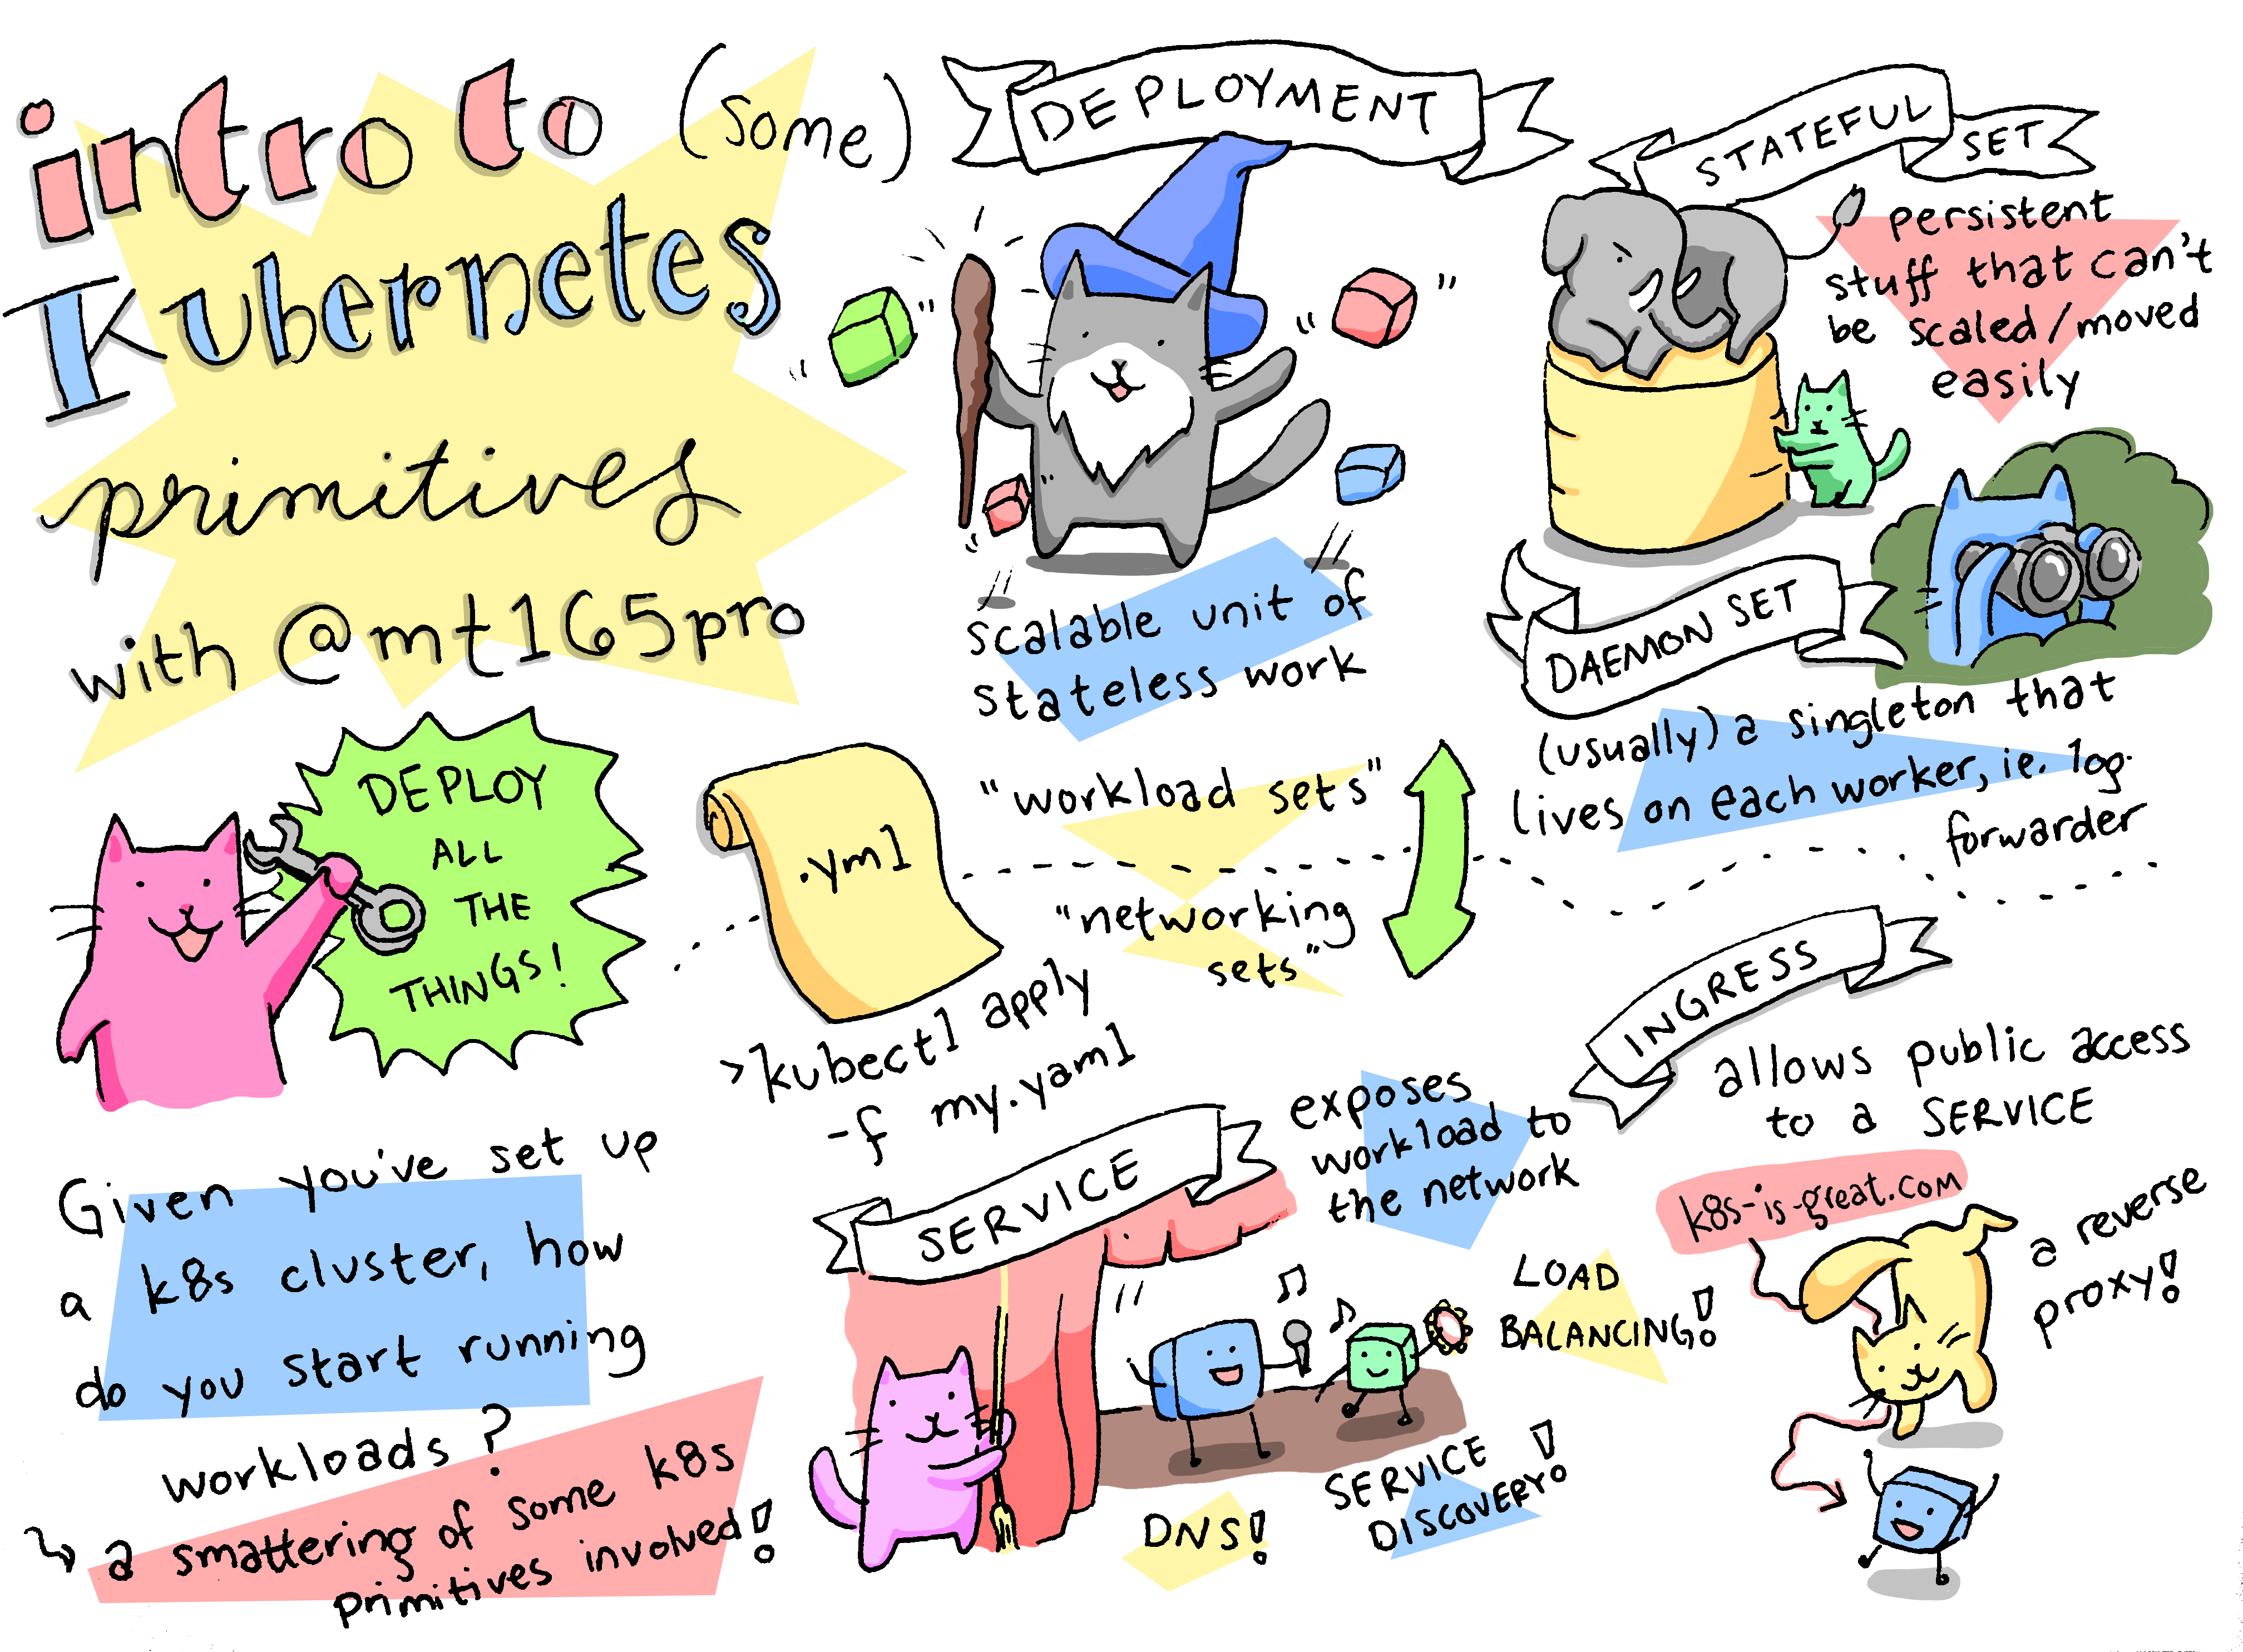 intro to (some)
Kubernetes
primitives
with @mt165pro
DEPLOY
ALL
THE
THINGS!
Given you've set up
a k8s cluster, how
do you start running
workloads?
a smattering of some k8s
primitives involved!
DEPLOYMENT
scalable unit of
stateless work
STATEFUL SET
persistent
stuff that can't
be scaled/moved
easily
DAEMON SET
(usually) a singleton that
lives on each worker, ie. log
forwarder
.yml
>kubectl apply
-f my.yaml
"workload sets"
"networking
sets"
SERVICE
exposes
workload to
the network
LOAD
BALANCING!
SERVICE
DISCOVERY!
DNS!
INGRESS
allows public access
to a SERVICE
k8s-is-great.com
a reverse
proxy!